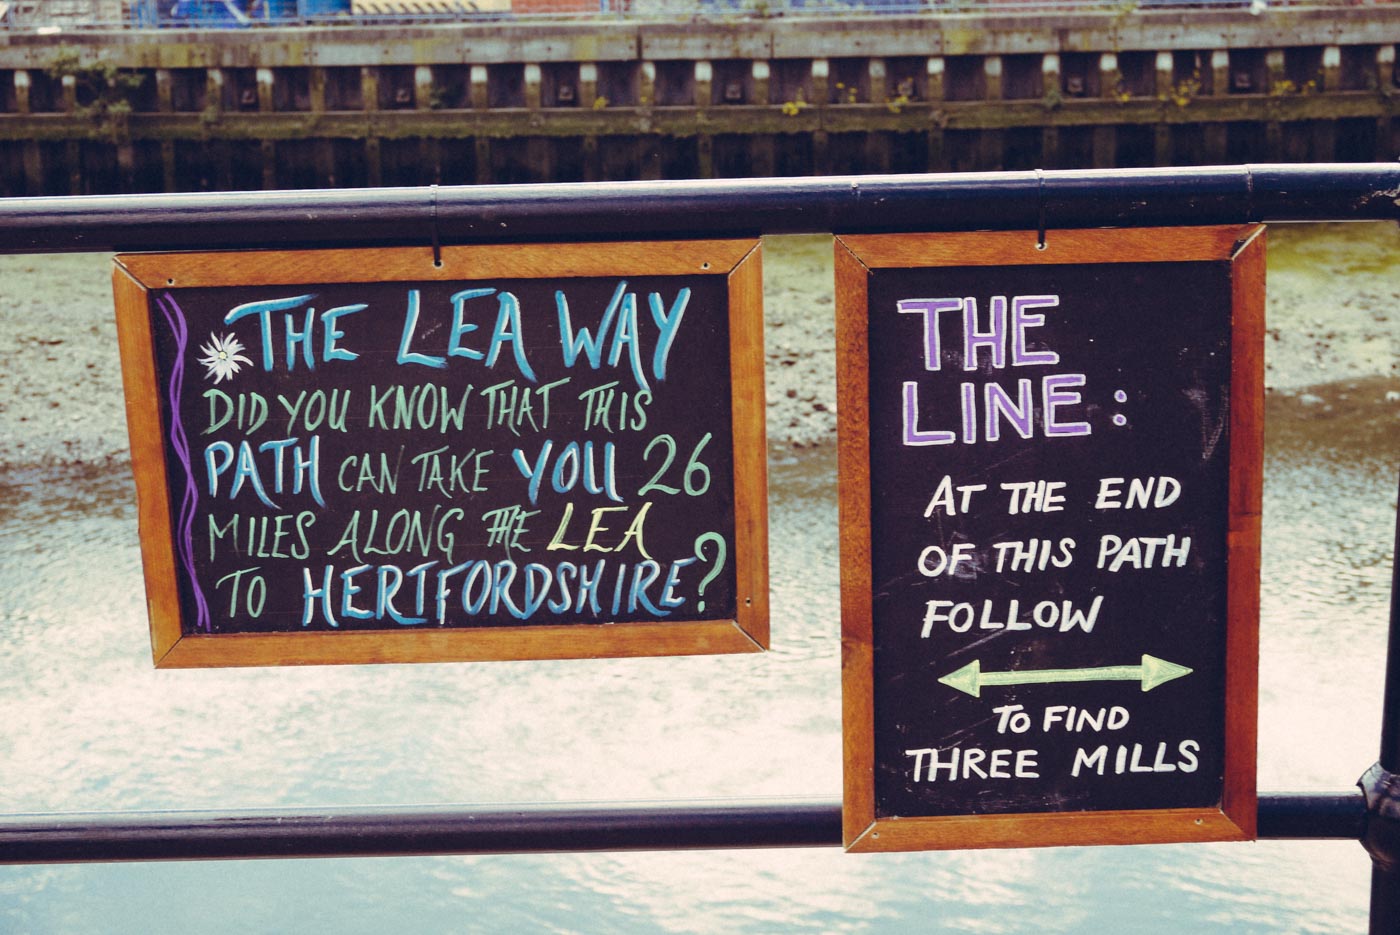 THE LEA WAY
DID YOU KNOW THAT THIS
PATH CAN TAKE YOU 26
MILES ALONG THE LEA
TO HERTFORDSHIRE?
THE
LINE:
AT THE END
OF THIS PATH
FOLLOW
TO FIND
THREE MILLS